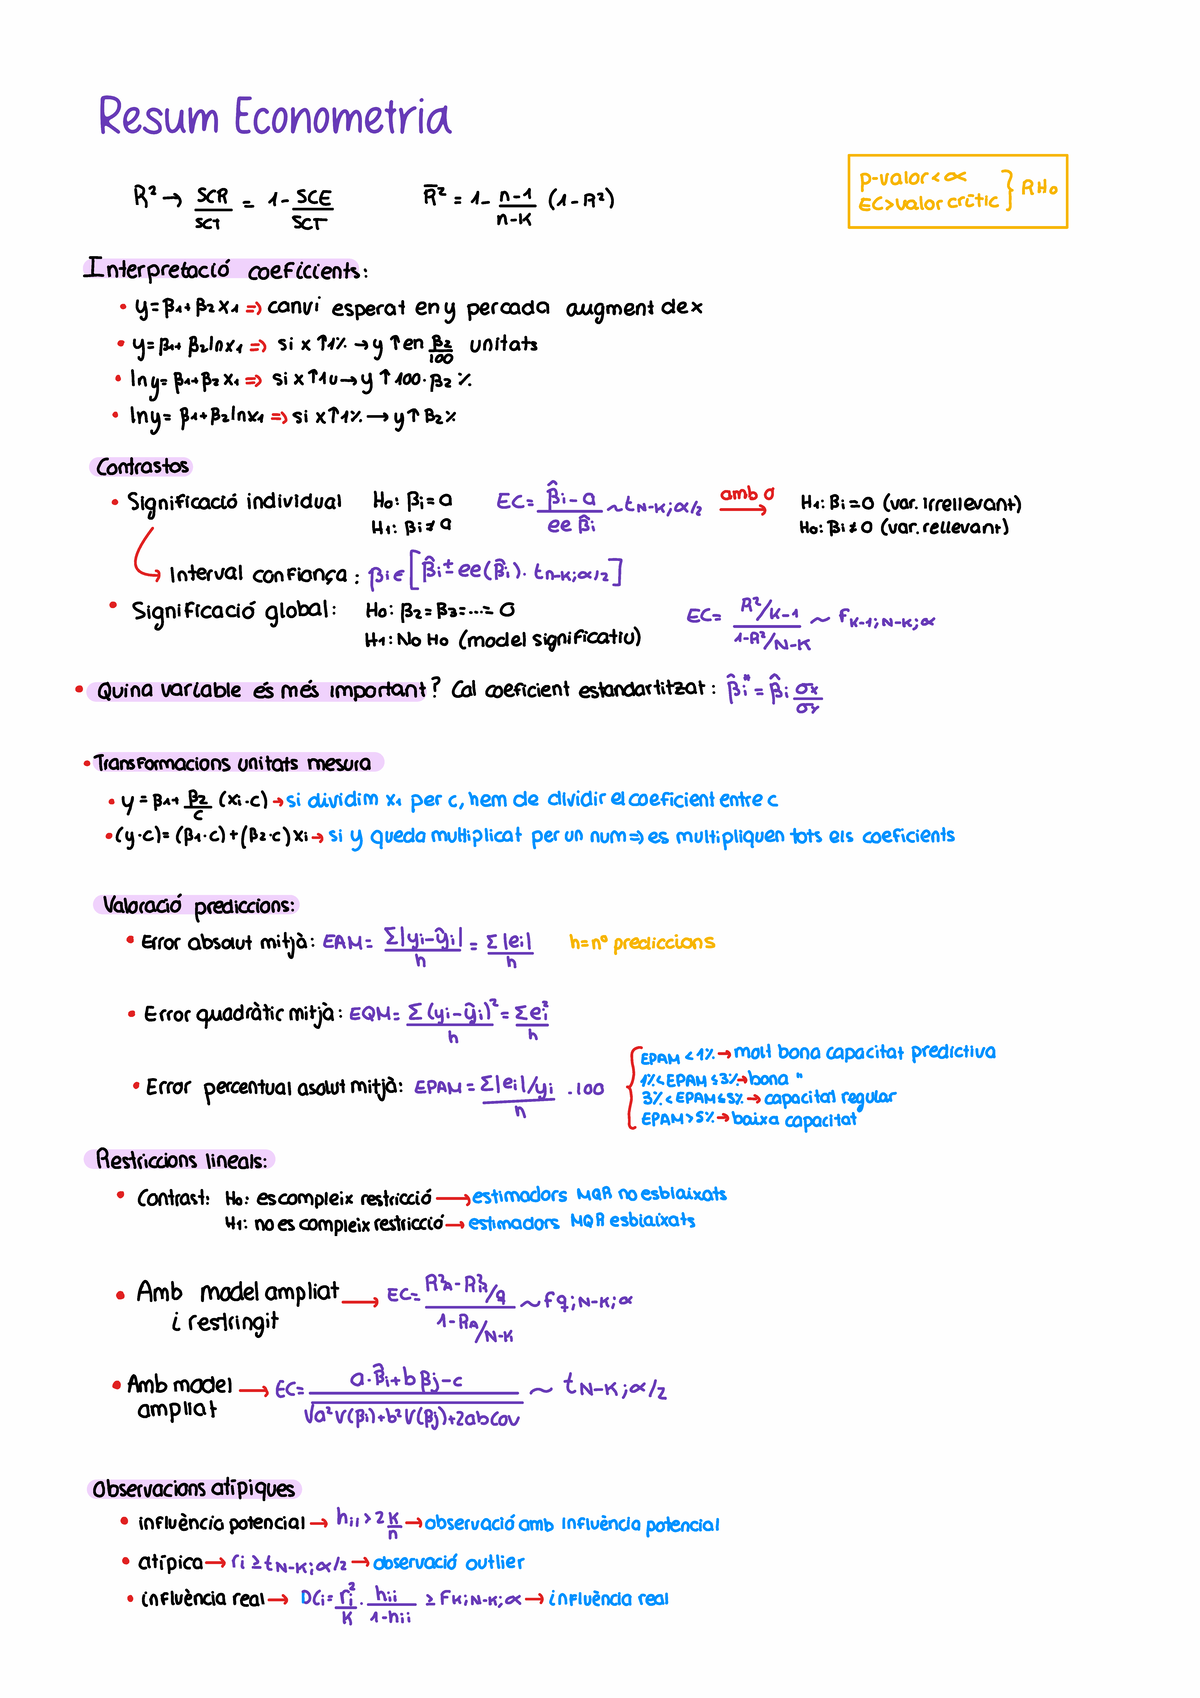 Resum Econometria
R² → SCR/SCT = 1 - SCE/SCT
R̄² = 1 - n-1/n-K (1-R²)
p-valor < α
EC > valor crític } RH₀
Interpretació coeficients:
• y = β₁ + β₂x₁ ⇒ canvi esperat en y per cada augment de x
• y = β₁ + β₂lnx₁ ⇒ si x ↑1% → y ↑ en β₂/100 unitats
• lny = β₁ + β₂x₁ ⇒ si x ↑1u → y ↑ 100·β₂ %
• lny = β₁ + β₂lnx₁ ⇒ si x ↑1% → y ↑ β₂%
Contrastos
• Significació individual H₀: βi = a EC = β̂i - a / ee β̂i ~ t N-K; α/2 amb 0 → H₁: βi = 0 (var. irrellevant)
H₁: βi ≠ a H₀: βi ≠ 0 (var. rellevant)
Interval confiança: βi ∈ [β̂i ± ee(β̂i) · t n-K; α/2]
• Significació global: H₀: β₂ = β₃ = ... = 0 EC = R²/K-1 / 1-R²/N-K ~ F K-1; N-K; α
H₁: No H₀ (model significatiu)
• Quina variable és més important? Cal coeficient estandartitzat: β̂i* = β̂i σx/σy
• Transformacions unitats mesura
• y = β₁ + β₂/c (xi·c) → si dividim x₁ per c, hem de dividir el coeficient entre c
• (y·c) = (β₁·c) + (β₂·c) xi → si y queda multiplicat per un num ⇒ es multipliquen tots els coeficients
Valoració prediccions:
• Error absolut mitjà: EAM = Σ|yi - ŷi|/h = Σ|ei|/h h = nº prediccions
• Error quadràtic mitjà: EQM = Σ(yi - ŷi)²/h = Σei²/h
• Error percentual asolut mitjà: EPAM = Σ|ei|/yi / n · 100
EPAM < 1% → molt bona capacitat predictiva
1% < EPAM ≤ 3% → bona "
3% < EPAM ≤ 5% → capacitat regular
EPAM > 5% → baixa capacitat
Restriccions lineals:
• Contrast: H₀: es compleix restricció → estimadors MQR no esbiaixats
H₁: no es compleix restricció → estimadors MQR esbiaixats
• Amb model ampliat → EC = R²A - R²R/q / 1-RA/N-K ~ Fq; N-K; α
i restringit
• Amb model → EC = a·β̂i + bβj - c / √a²V(βi) + b²V(βj) + 2abCov ~ t N-K; α/2
ampliat
Observacions atípiques
• influència potencial → hii > 2 K/n → observació amb influència potencial
• atípica → ri ≥ t N-K; α/2 → observació outlier
• influència real → DCi = ri²/K · hii/1-hii ≥ FK; N-K; α → influència real